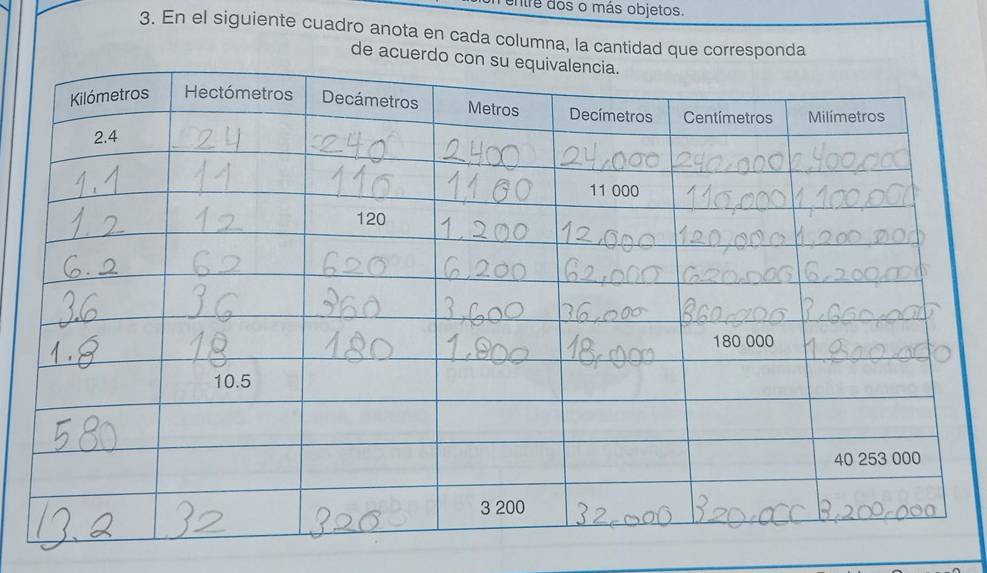 entre dos o más objetos.
3. En el siguiente cuadro anota en cada columna, la cantidad que corresponda
de acuerdo con su equivalencia.
Kilómetros Hectómetros Decámetros Metros Decímetros Centímetros Milímetros
2.4 24 240 2400 24,000 240,000 2,400,000
1.1 11 110 1100 11 000 110,000 1,100,000
1.2 12 120 1,200 12,000 120,000 1,200,000
6.2 62 620 6,200 62,000 620,000 6,200,000
3.6 36 360 3,600 36,000 360,000 3,600,000
1.8 18 180 1,800 18,000 180 000 1,800,000
10.5
580
40 253 000
3.2 32 320 3 200 32,000 320,000 3,200,000